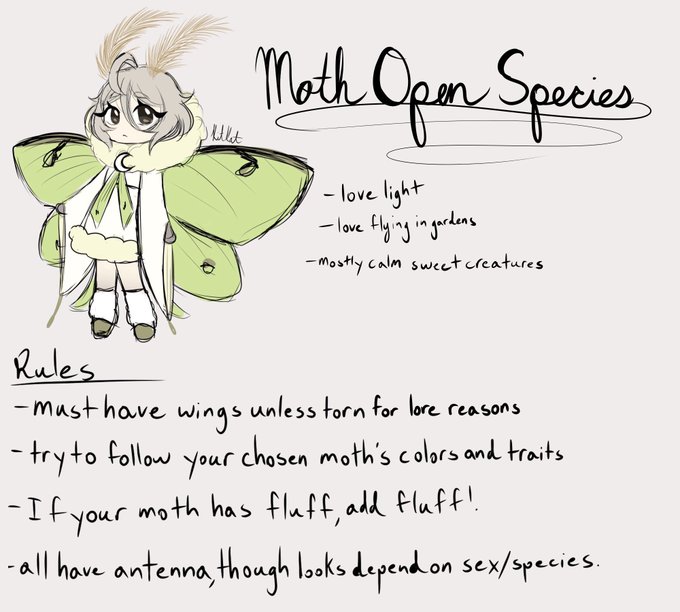 Moth Open Species
- love light
- love flying in gardens
- mostly calm sweet creatures
Rules
- must have wings unless torn for lore reasons
- try to follow your chosen moth's colors and traits
- If your moth has fluff, add fluff!
- all have antenna, though looks depend on sex/species.